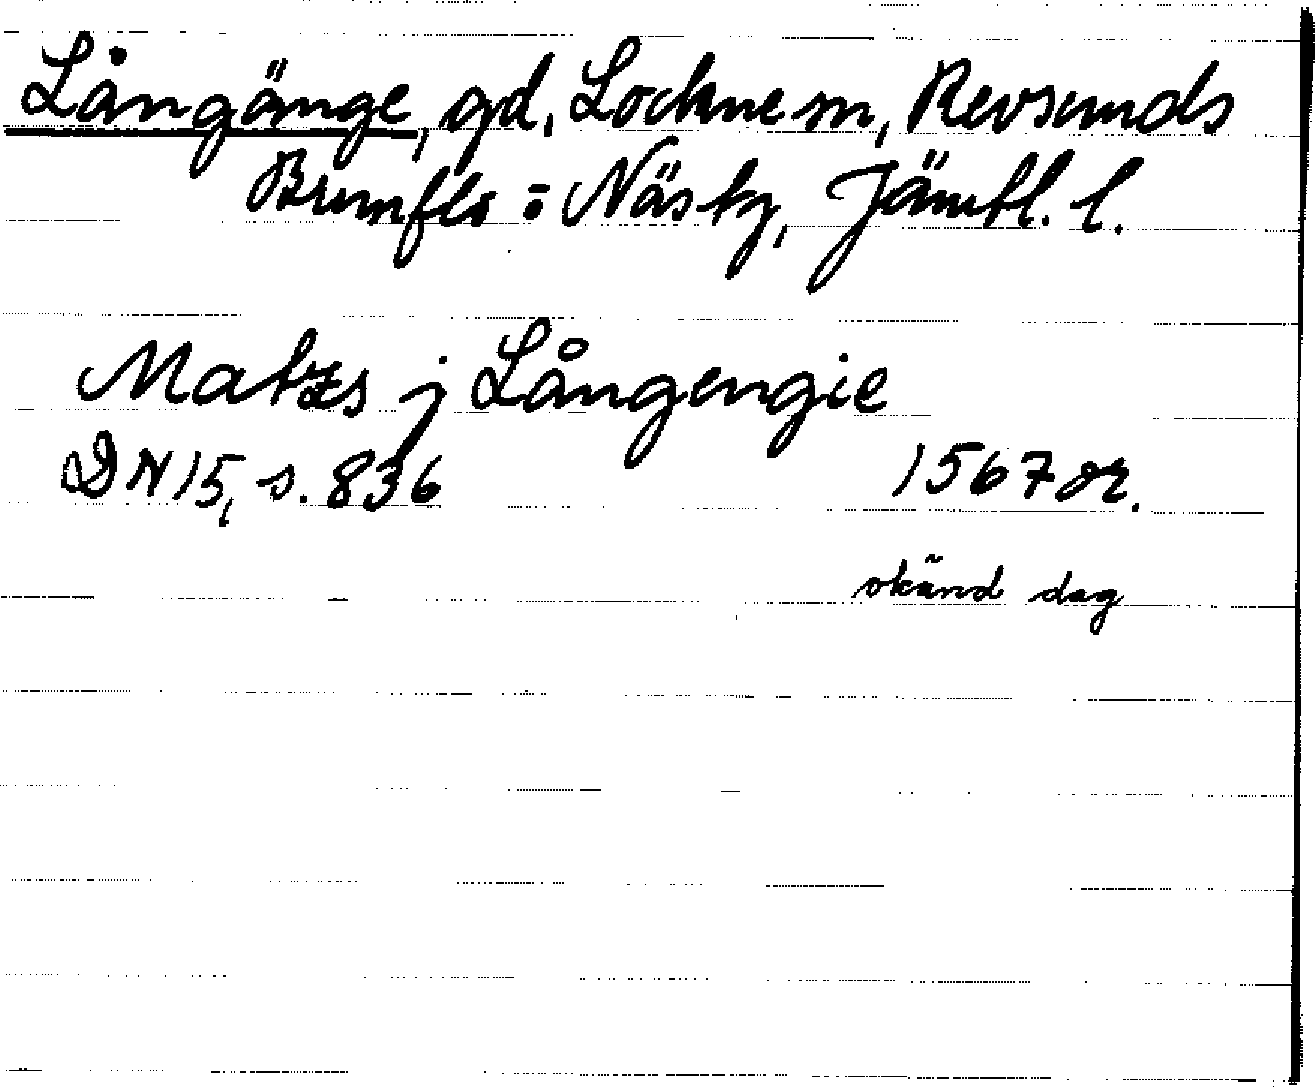 Långänge, gd, Lockne sn, Revsunds
Brunflo = Näs tg, Jämtl. l.
Matzs j Långengie
DN 15, s. 836 1567 or.
okänd dag